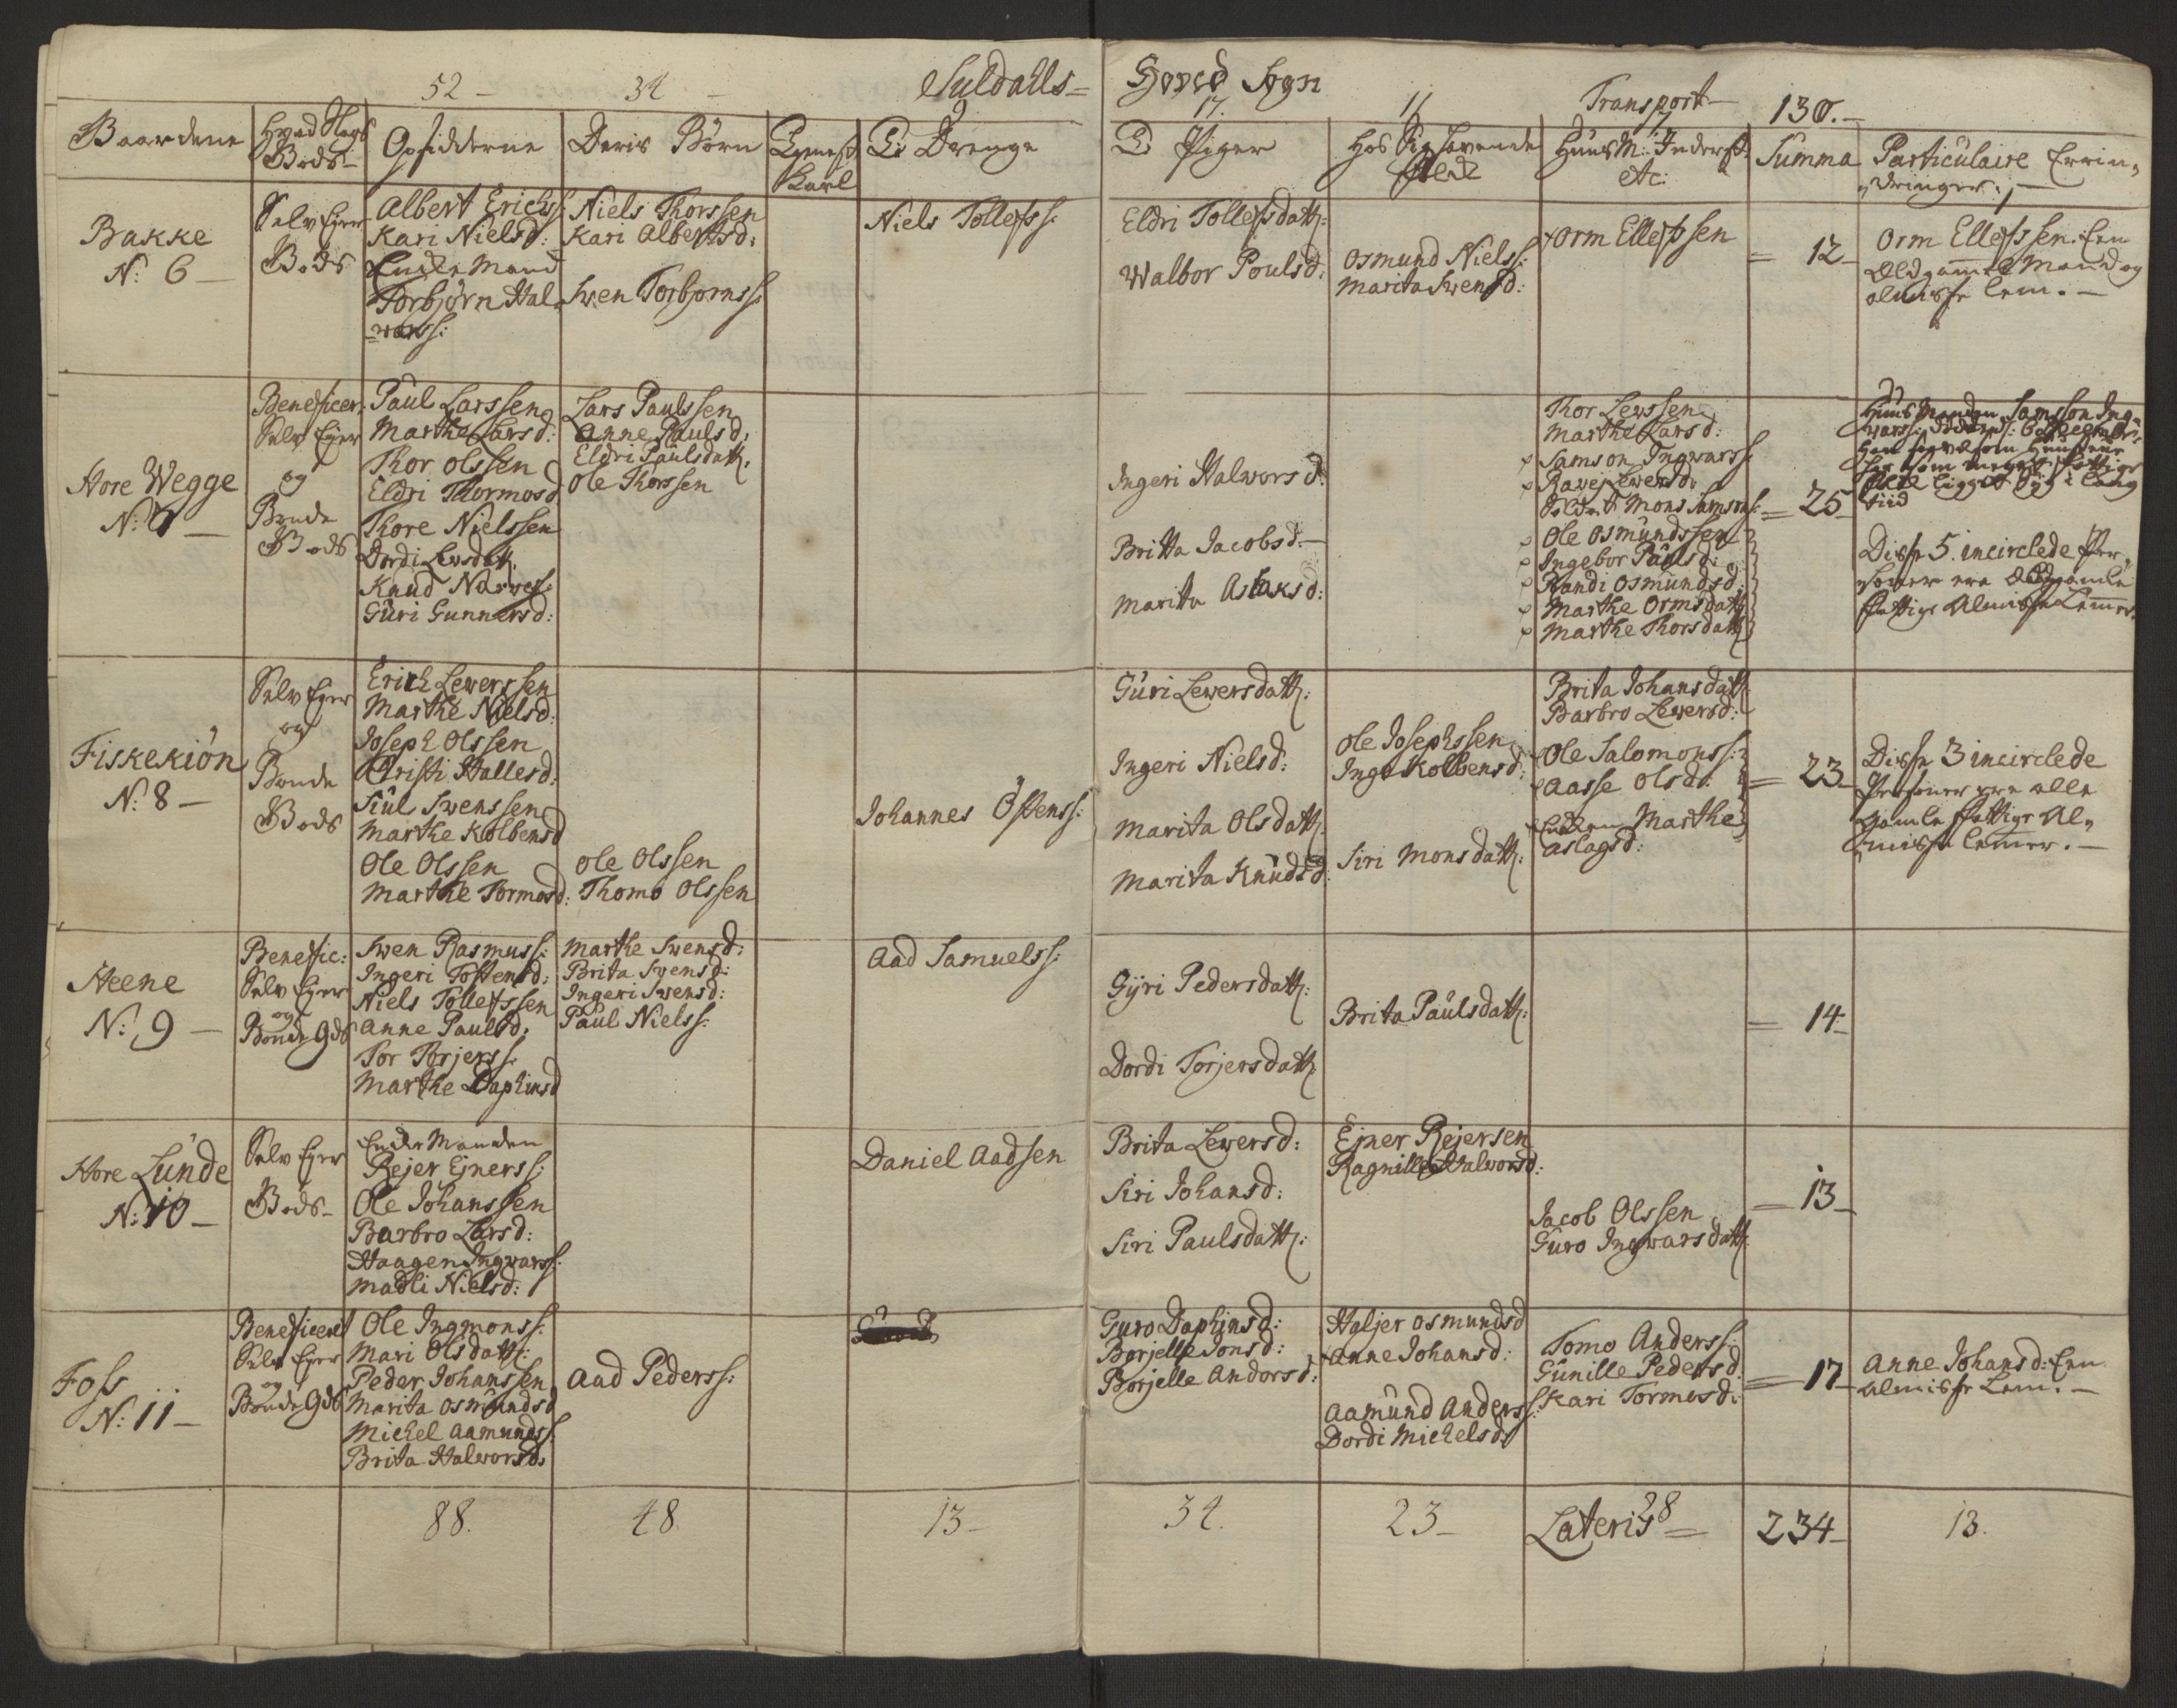 Suldahls= Hoved Sogn
52 – 34 – 17. 11 Transport – 130. –
Gaardene
Hvad Slags Gods –
Opsidderne
Deris Börn
Tieneste Karl
D: Drenge
D: Piger
Hos Sig havende Folck
Huus M: Inderst: etc:
Summa
Particulaire Errin„
„dringer. –
Bakke
N: 6 –
Selv Eyer
Gods
Albert Erichs:
Kari Nielsd:
Encke Mand
Torbjörn Hal
=wors:
Niels Thorssen
Kari Albertsd:
Swen Torbjorns:
Niels Tollefs:
Eldri Tollefsdatt:
Walbor Poulsd:
Osmund Niels:
Marita Swensd:
Orm Ellefssen
= 12 –
Orm Ellefssen Een
Oldgam̄el Mand og
almisse Lem. –
Hore Wegge
N: 7 –
Beneficer.
Selv Eyer
og
Bonde
Gods
Paul Larssen
Marthe Larsd:
Thor Olssen
Eldri Thormosd
Thore Nielssen
Dordi Lewsdatt.
Knud Narwes:
Guri Gunnersd:
Lars Paulssen
Anne Paulsd:
Eldri Paulsdatt.
Ole Thorssen
Ingeri Halworsd:
Britta Jacobsd: –
Marita Aslaksd:
Thor Lewssen
Marthe Larsd:
Samson Ingwars:
Rawe Lewersd:
Soldat Mons Samsons:
Ole Osmundssen
Ingebor Paulsd:
Randi Osmundsd:
Marthe Ormsdatt
Marthe Thorsdatt
= 25
Huus Manden Samson Ing„
wars: döde d: 6 Decembr:
tiid
Disse 5 incirclede Per„
„soner ere Oldgamle
fattige Almisse Lem̄er.
Fiskekiön
N: 8 –
Selv Eyer
og
Bonde
Gods
Erich Lewerssen
Marthe Nielsd:
Joseph Olssen
Christi Hallesd:
Siul Swenssen
Marthe Kolbensd
Ole Olssen
Marthe Tormosd:
Ole Olssen
Thomo Olssen
Johannes Östens:
Guri Lewersdatt:
Ingeri Nielsd:
Marita Olsdatt:
Marita Knudsd:
Ole Josephssen
Inge Kolbensd:
Siri Monsdatt:
Brita Johansdatt
Barbro Lewersd:
Ole Salomons:
Aasse Olsd:
Encken Marthe
Aslagsd:
= 23
Disse 3 incirclede
Personer ere alle
gamle fattige Al„
„misse Lemer. –
Heene
N: 9 –
Benefic:
Selv Eyer
og
Bonde Gds
Swen Rasmus:
Ingeri Tostensd:
Niels Tollefssen
Anne Paulsd:
Tor Torjers:
Marthe Daphinsd
Marthe Swensd:
Brita Swensd:
Ingeri Swensd:
Paul Niels:
Aad Samuels:
Gÿri Pedersdatt:
Dordi Torjersdatt
Brita Paulsdatt:
= 14 –
Hore Lunde
N: 10 –
Selv Eyer
Gods –
Encke Manden
Rejer Ejners:
Ole Johanssen
Barbro Larsd:
Haagen Ingwars:
Madli Nielsd:
Daniel Aadsen
Brita Lewersd:
Siri Johansd:
Siri Paulsdatt:
Ejner Rejersen
Ragnille Halworsd:
Jacob Olssen
Guro Ingwarsdatt
= 13 –
Foss
N: 11 –
Beneficeret
Selv Eyer
og
Bonde Gds
Ole Ingmons:
Mari Olsdatt:
Peder Johanssen
Marita Osmundsd
Michel Aamunds:
Brita Halworsd:
Aad Peders:
Guro Daphinsd:
Borjelle Jonsd:
Borjelle Andorsd:
Haljer Osmundsd
Anne Johansd:
Aamund Anders:
Dordi Michelsd:
Tomo Anders:
Gunille Pedersd
Kari Tormosd:
= 17
Anne Johansd: Een
Almisse Lem. –
88. 48. 13 – 34. 23 – 28
Lateris = 234 – 13.